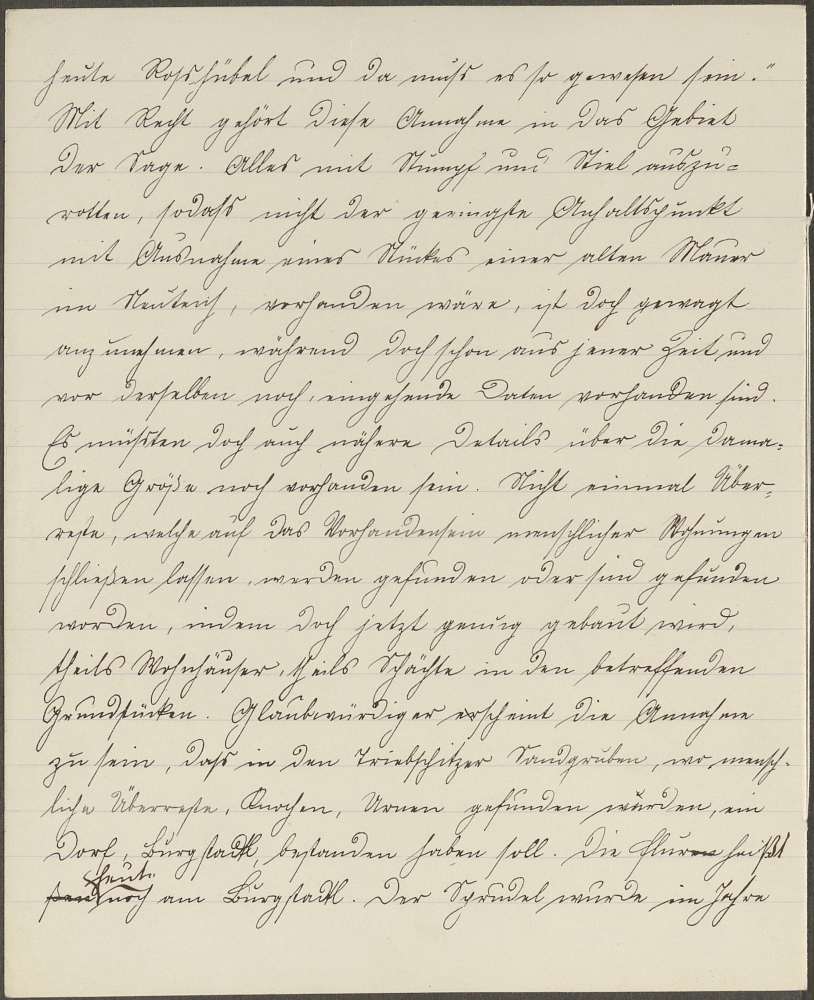 heute Rosshübel und da muss es so gewesen sein."
Mit Recht gehört diese Annahme in das Gebiet
der Sage. Alles mit Stumpf und Stiel auszu=
rotten, sodass nicht der geringste Anhaltspunkt
mit Ausnahme eines Stückes einer alten Mauer
im Neuteich, vorhanden wäre, ist doch gewagt
anzunehmen, während doch schon aus jener Zeit und
vor derselben noch, eingehende Daten vorhanden sind.
Es müssten doch auch nähere Details über die dama=
lige Größe noch vorhanden sein. Nicht einmal Über=
reste, welche auf das Vorhandensein menschlicher Wohnungen
schließen lassen, werden gefunden oder sind gefunden
worden, indem doch jetzt genug gebaut wird,
theils Wohnhäuser, theils Schächte in den betreffenden
Grundstücken. Glaubwürdiger erscheint die Annahme
zu sein, dass in den Triebschitzer Sandgruben, wo mensch-
liche Überreste, Knochen, Urnen gefunden wurden, ein
Dorf, Burgstadtl, bestanden haben soll. Die Flur heißt
heute noch am Burgstadtl. Der Sprudel wurde im Jahre